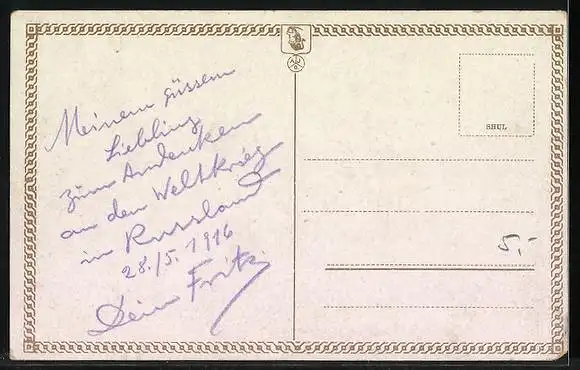 Meinem süssem
Liebling
zum Andenken
an den Weltkrieg
in Russland
28./5. 1916
Dein Fritz.
SHUL
5,-